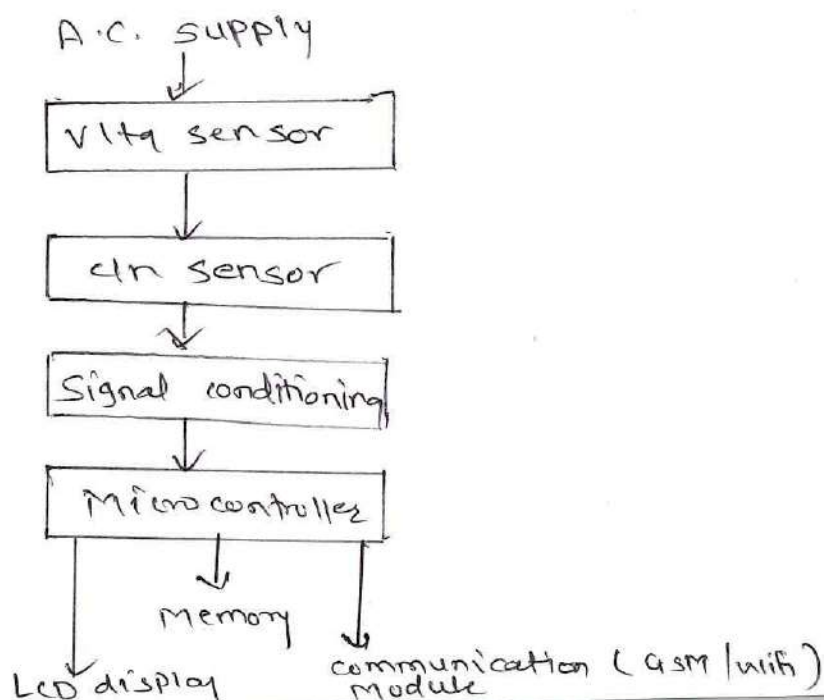 A.C. supply
Vltg sensor
c/n sensor
Signal conditioning
Microcontroller
Memory
LCD display
communication (GSM/wifi)
module